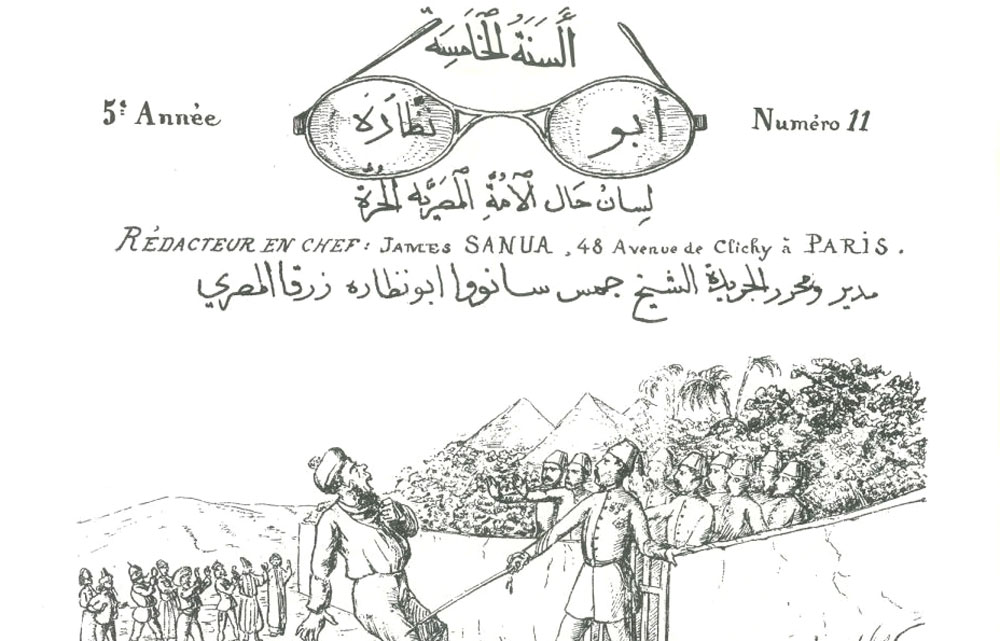 السنة الخامسة
5e Année
ابو نظاره
Numéro 11
لسان حال الأمة المصرية الحرة
RÉDACTEUR EN CHEF: JAMES SANUA, 48 Avenue de Clichy à PARIS.
مدير ومحرر الجريدة الشيخ جمس سانووا ابو نظاره زرقا المصري